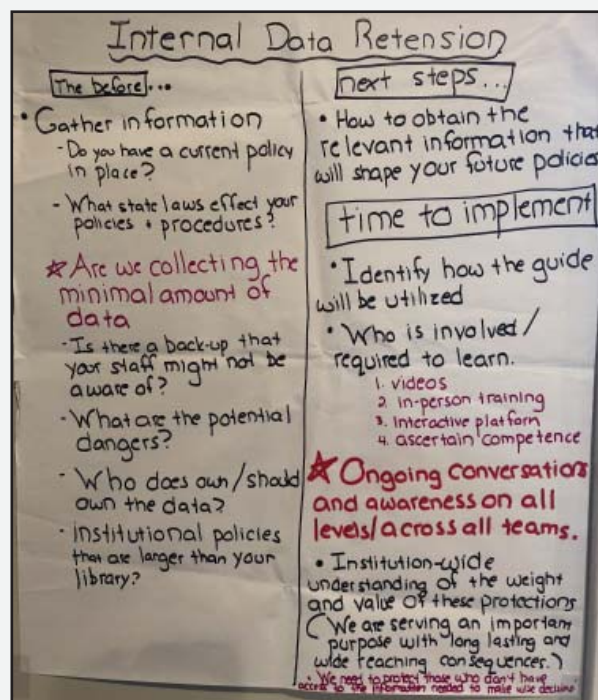 Internal Data Retension
The before...
• Gather information
- Do you have a current policy
in place?
- What state laws effect your
policies + procedures?
☆ Are we collecting the
minimal amount of
data
- Is there a back-up that
your staff might not be
aware of?
- What are the potential
dangers?
- Who does own/should
own the data?
- Institutional policies
that are larger than your
library?
next steps...
• How to obtain the
relevant information that
will shape your future policies
time to implement
• Identify how the guide
will be utilized
• Who is involved/
required to learn.
1. videos
2. in-person training
3. interactive platform
4. ascertain competence
☆ Ongoing conversations
and awareness on all
levels/across all teams.
• Institution-wide
understanding of the weight
and value of these protections
(We are serving an important
purpose with long lasting and
wide reaching consequences.)
• We need to protect those who don't have
access to the information needed to make wise